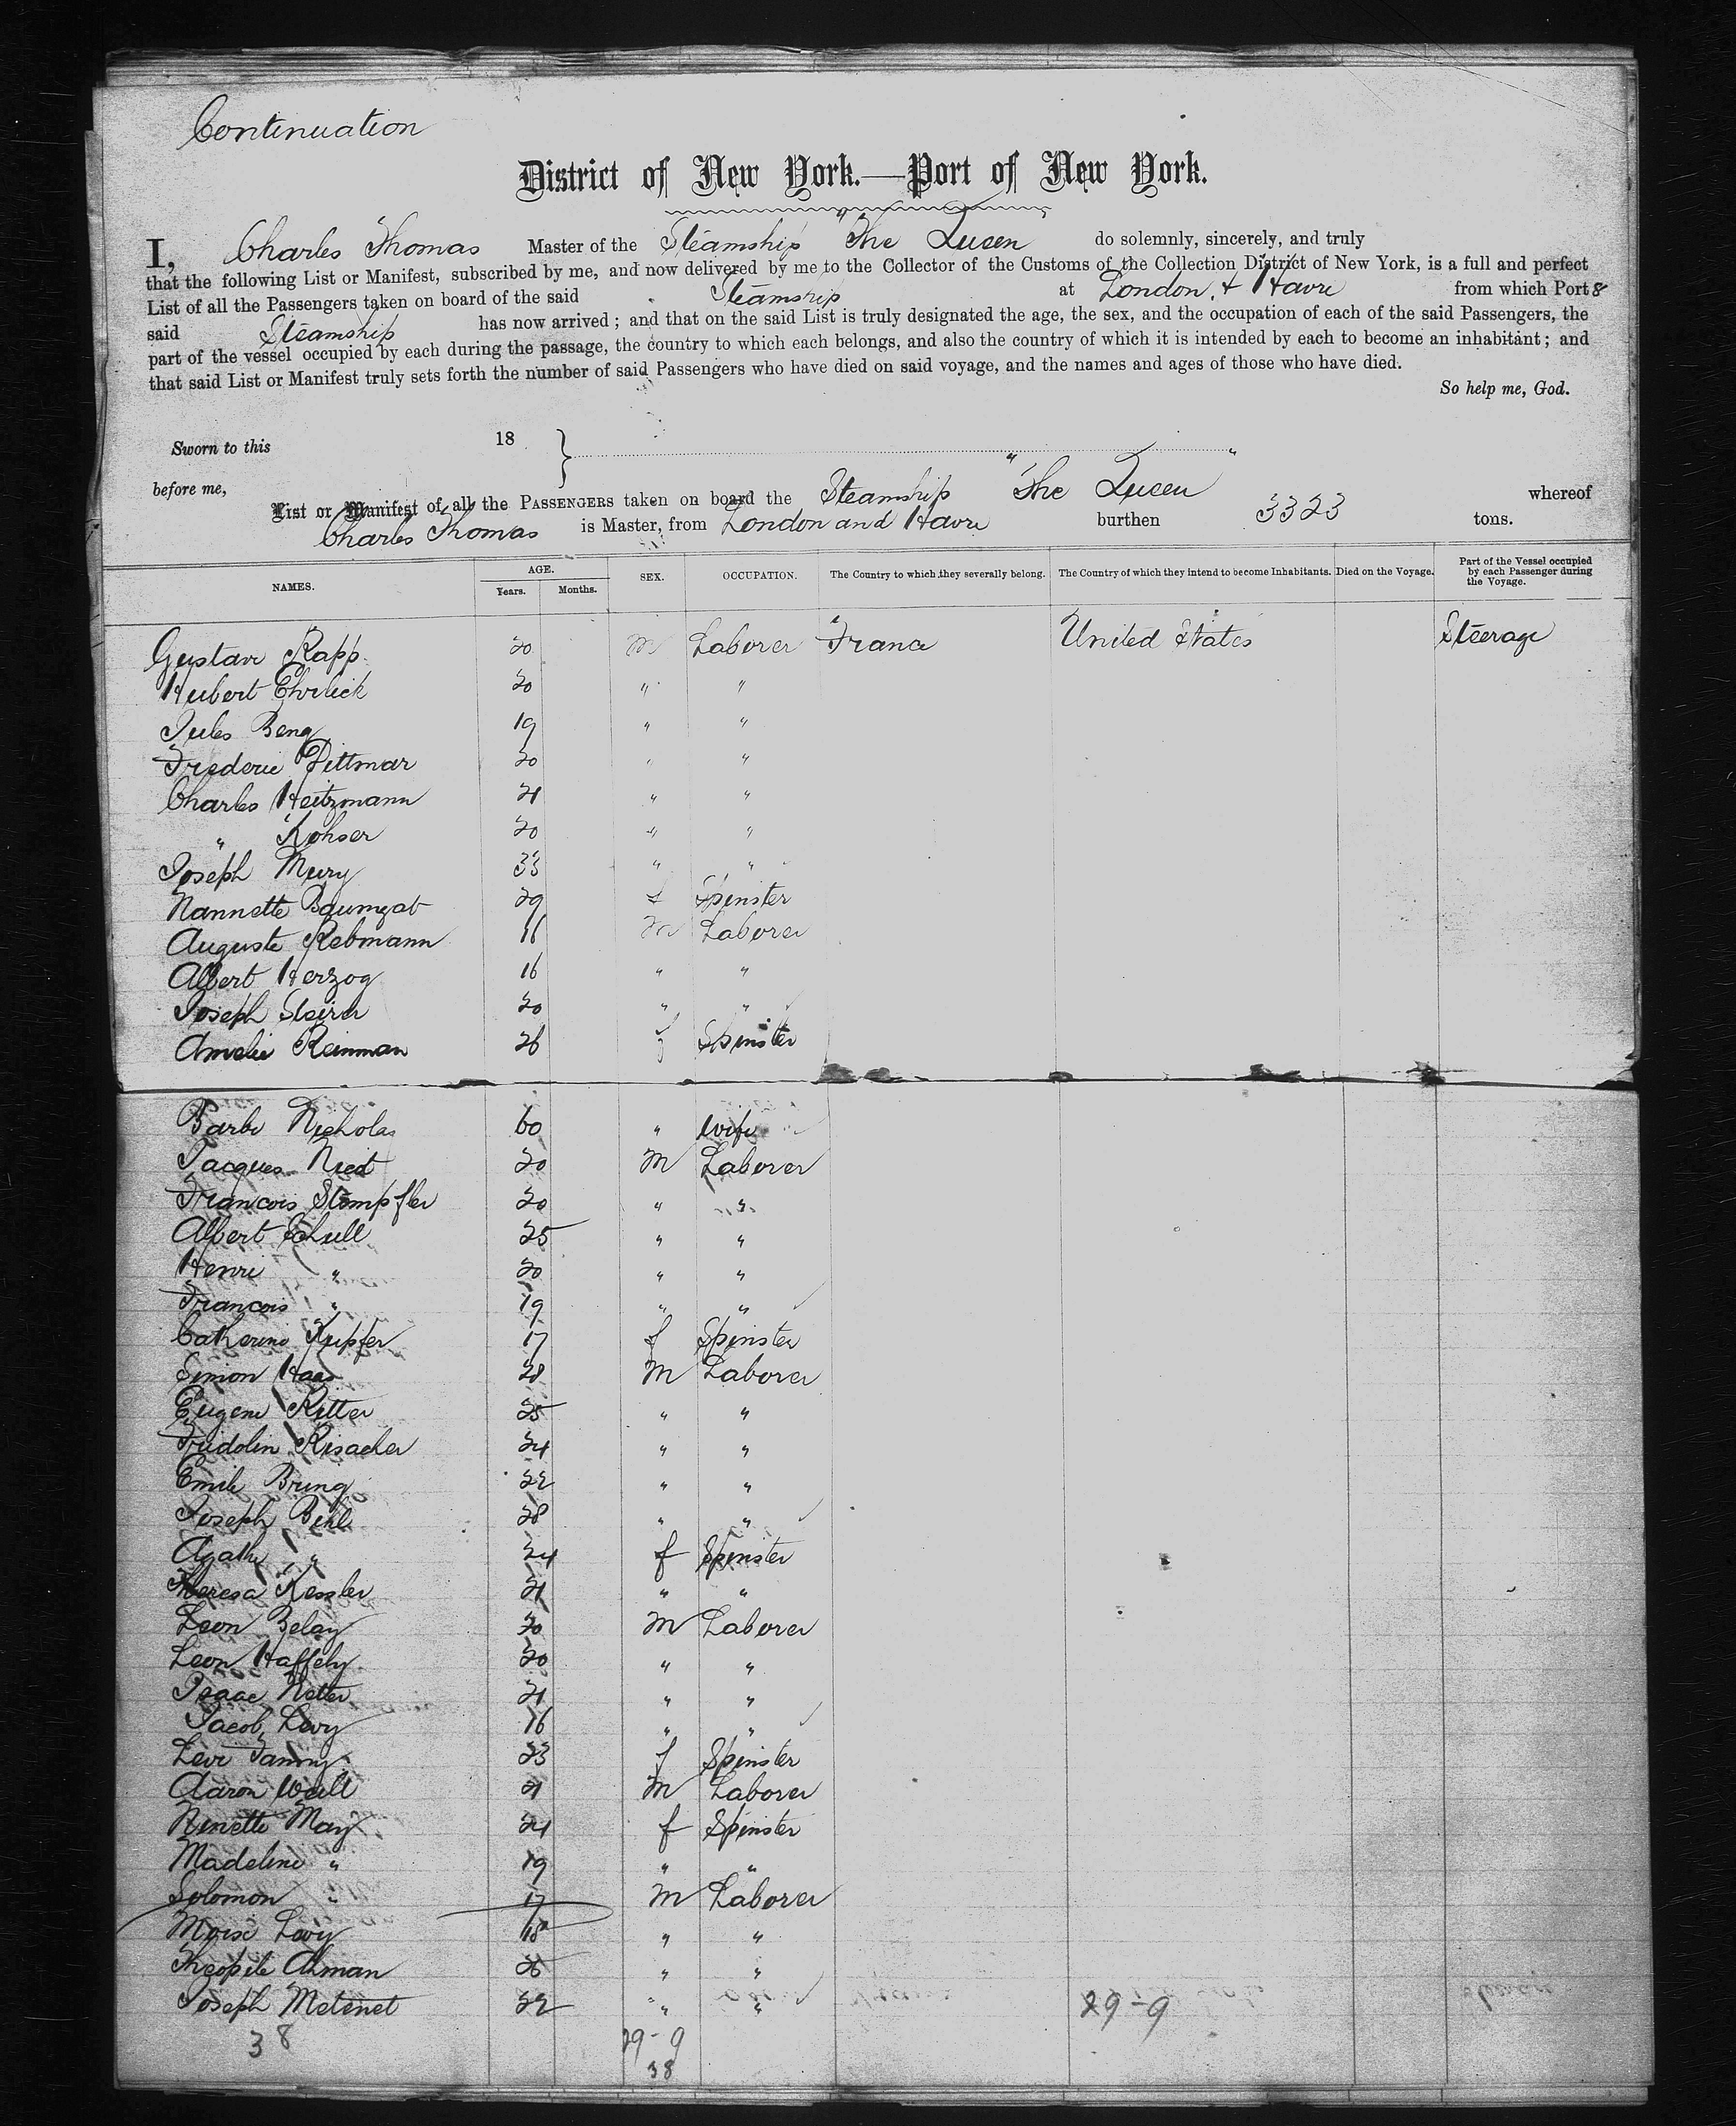 Continuation
District of New York.—Port of New York.
I, Charles Thomas Master of the Steamship "The Queen do solemnly, sincerely, and truly
that the following List or Manifest, subscribed by me, and now delivered by me to the Collector of the Customs of the Collection District of New York, is a full and perfect
List of all the Passengers taken on board of the said Steamship at London, & Havre from which Port s
said Steamship has now arrived; and that on the said List is truly designated the age, the sex, and the occupation of each of the said Passengers, the
part of the vessel occupied by each during the passage, the country to which each belongs, and also the country of which it is intended by each to become an inhabitant; and
that said List or Manifest truly sets forth the number of said Passengers who have died on said voyage, and the names and ages of those who have died.
So help me, God.
Sworn to this 18
before me,
List or Manifest of all the PASSENGERS taken on board the Steamship "The Queen" whereof
Charles Thomas is Master, from London and Havre burthen 3323 tons.
NAMES. AGE. Years. Months. SEX. OCCUPATION. The Country to which they severally belong. The Country of which they intend to become Inhabitants. Died on the Voyage. Part of the Vessel occupied by each Passenger during the Voyage.
Gustave Rapp 20 m Laborer France United States Steerage
Hubert Ehrlich 20 " "
Jules Beng 19 " "
Frederic Dittmar 20 " "
Charles Heitzmann 21 " "
" Kohser 20 " "
Joseph Mury 33 " "
Nannette Baumgat 29 f Spinster
Auguste Rebmann 16 m Laborer
Albert Herzog 16 " "
Joseph 20 " "
Amelie Reinman 26 f Spinster
Barbe Nicholas 60 " Wife
Jacques Nied 20 m Laborer
Francois Stompfler 20 " "
Albert Schull 25 " "
Henri " 20 " "
Francois " 19 " "
Catherine Kupfer 17 f Spinster
Simon Haas 28 m Laborer
Eugene Ritter 25 " "
Fridolin Risacher 24 " "
Emile Bring 22 " "
Joseph Bihl 28 " "
Agathe " 24 f Spinster
Theresa Kessler 21 " "
Leon Belay 20 m Laborer
Leon Haffely 20 " "
Isaac Netter 21 " "
Jacob Levy 16 " "
Levi Fanny 23 f Spinster
Aaron Weill 21 m Laborer
Ninette May 24 f Spinster
Madeline " 19 " "
Solomon " 17 m Laborer
Moise Levy 18 " "
Theopile Ahman 26 " "
Joseph Metenet 22 " " 29-9
38 29-9
38